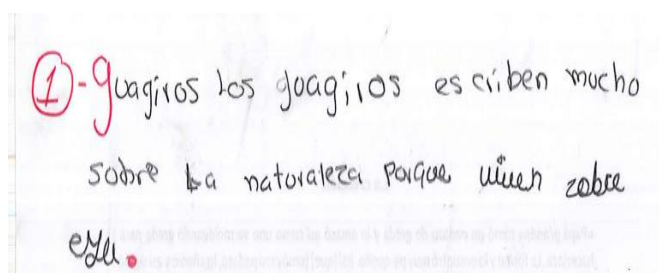 1-guagiros Los goagiros escriben mucho
sobre la naturaleza porque viven zobre
eya.